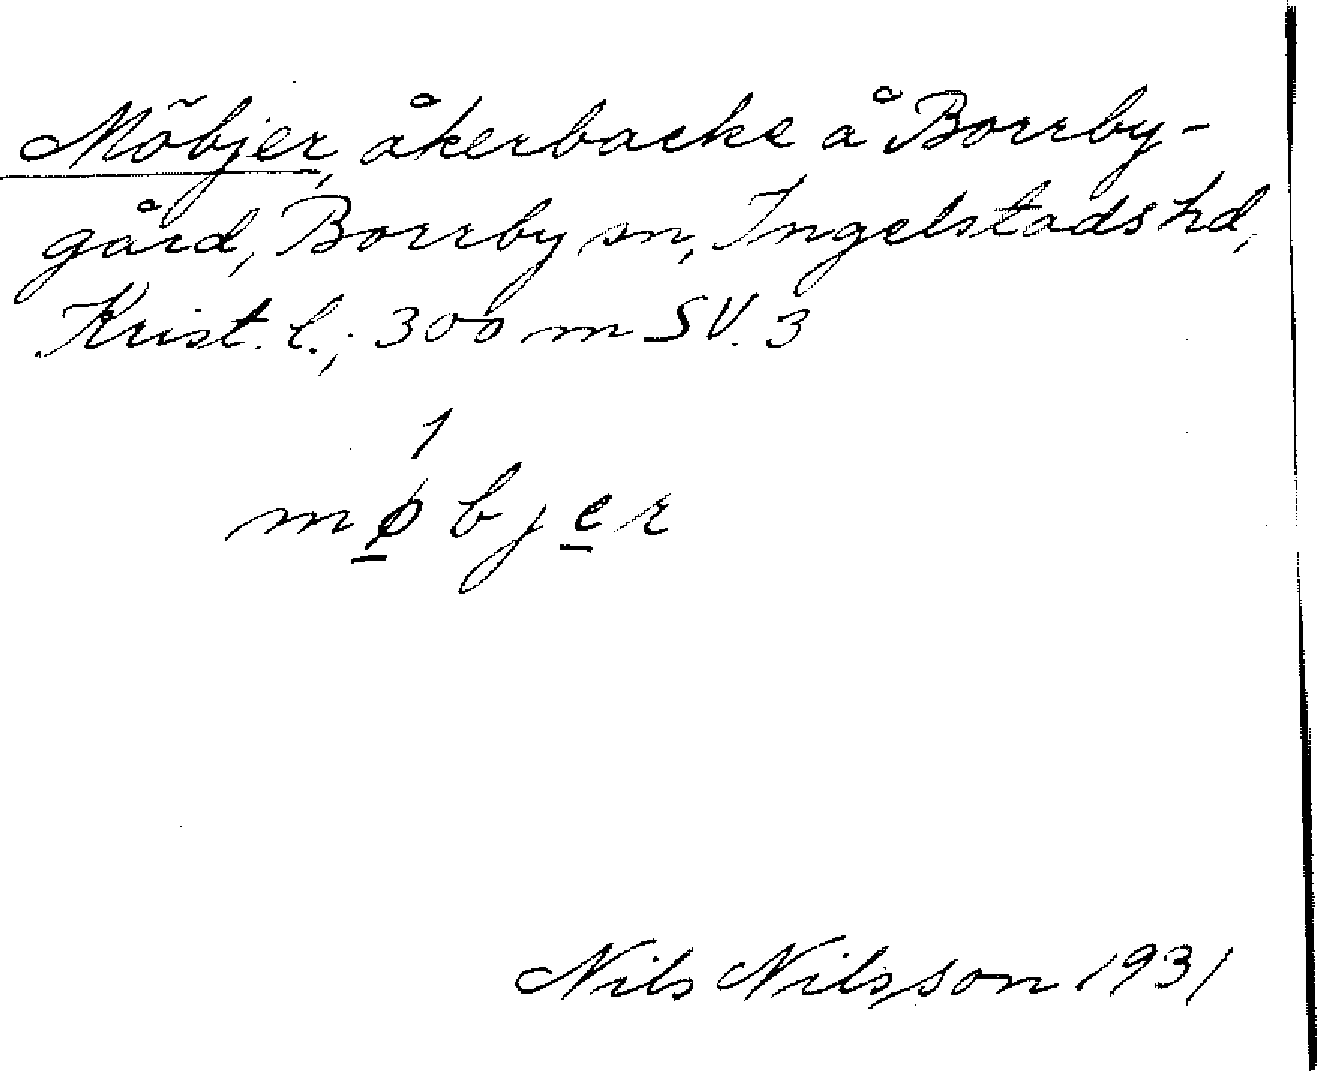 Möbjer, åkerbacke å Borrby-
gård, Borrby sn, Ingelstads hd,
Krist. l.; 300 m SV. 3
1
møbjer
Nils Nilsson 1931